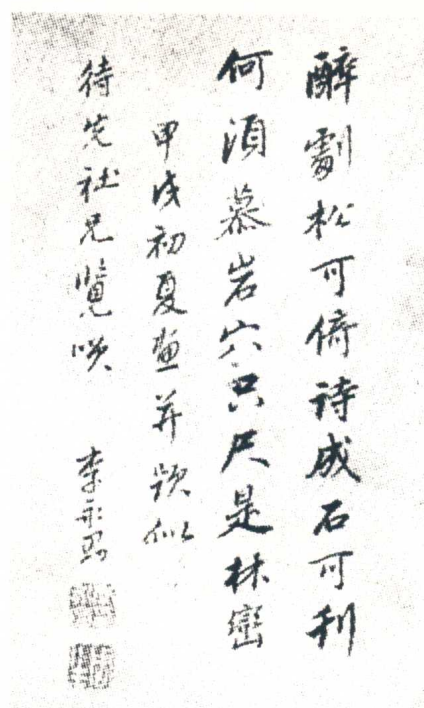 醉劇松可倚詩成石可刊
何須慕岩穴只尺是林巒
甲戌初夏畫并題似
待先社兄覽咲 李永昌